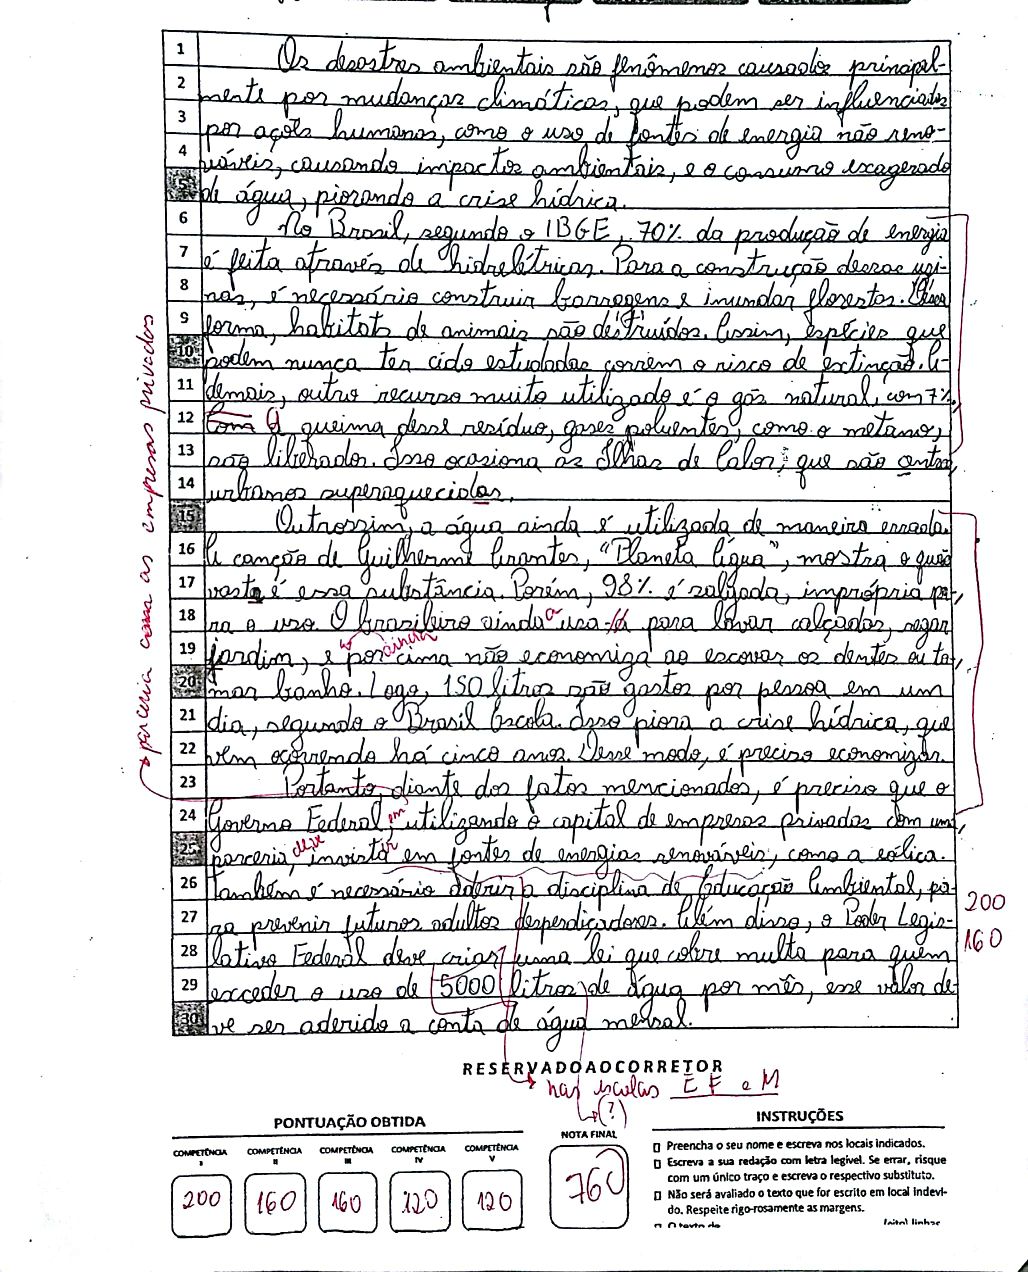 1 Os desastres ambientais são fenômenos causados principal-
2 mente por mudanças climáticas, que podem ser influenciadas
3 por ações humanas, como o uso de fontes de energia não reno-
4 váveis, causando impactos ambientais, e o consumo exagerado
5 de água, piorando a crise hídrica.
6 No Brasil, segundo o IBGE, 70% da produção de energia
7 é feita através de hidrelétricas. Para a construção dessas usi-
8 nas, é necessário construir barragens e inundar florestas. Dessa
9 forma, habitats de animais são destruídos. Assim, espécies que
10 podem nunca ter sido estudadas correm o risco de extinção. A-
11 demais, outro recurso muito utilizado é o gás natural, com 7%,
12 Com A queima desse resíduo, gases poluentes, como o metano,
13 são liberados. Isso ocasiona as Ilhas de Calor, que são centros
14 urbanos superaquecidos.
15 Outrossim, a água ainda é utilizada de maneira errada.
16 A canção de Guilherme Arantes, "Planeta Água", mostra o quão
17 vasta é essa substância. Porém, 98% é salgada, imprópria pa-
18 ra o uso. O brasileiro ainda a usa para lavar calçadas, regar
19 jardim, e por cima não economiza ao escovar os dentes ou to-
ainda
20 mar banho. Logo, 150 litros são gastos por pessoa em um
21 dia, segundo o Brasil Escola. Isso piora a crise hídrica, que
22 vem ocorrendo há cinco anos. Desse modo, é preciso economizar.
23 Portanto, diante dos fatos mencionados, é preciso que o
24 Governo Federal, utilizando o capital de empresas privadas com uma
em
25 parceria, invista em fontes de energias renováveis, como a eólica.
deve
ir
26 Também é necessário aderir a disciplina de Educação Ambiental, pa-
27 ra prevenir futuros adultos desperdiçadores. Além disso, o Poder Legis-
28 lativo Federal deve criar uma lei que cobre multa para quem
29 exceder o uso de 5000 litros de água por mês, esse valor de-
30 ve ser aderido a conta de água mensal.
parceria com as empresas privadas
200
160
RESERVADO AO CORRETOR
nas escolas E F e M
(?)
PONTUAÇÃO OBTIDA
COMPETÊNCIA I
COMPETÊNCIA II
COMPETÊNCIA III
COMPETÊNCIA IV
COMPETÊNCIA V
200 160 160 120 120
NOTA FINAL
760
INSTRUÇÕES
Preencha o seu nome e escreva nos locais indicados.
Escreva a sua redação com letra legível. Se errar, risque
com um único traço e escreva o respectivo substituto.
Não será avaliado o texto que for escrito em local indevi-
do. Respeite rigo-rosamente as margens.